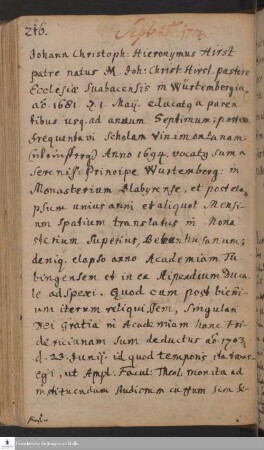 216.
Septembr. 1704.
Johann Christoph: Hieronymus Hirst
patre natus M. Joh: Christ. Hirst, pastore
Ecclesiæ Suabacensis in Würtembergia,
aō. 1681 d. 1. Maij. educatq a paren
tibus usq. ad annum Septimum; postea
frequentavi Scholam Vinimontanam
Anno 1694. vocatq sum a
Sereniss: Principe Wurtemberg: in
Monasterium Blabyrense, et post ela,
psum unius anni et aliquot Mensi,
um spatium translatus in Mona
sterium Superius, Bebenhusanum;
deniq. elapso anno Academiam Tu
bingensem et in ea Stipendium Duca
le adspexi. Quod cum post bieñi
um iterum reliquissem, singulari
Dei Gratia in Academiam hanc Fri
dericianam sum deductus aō. 1703,
d. 23. Junij. id quod temporis ita trans,
egi, ut Ampl. Facul: Theol. monita ad
instituendum Studiorum cursum sim se-